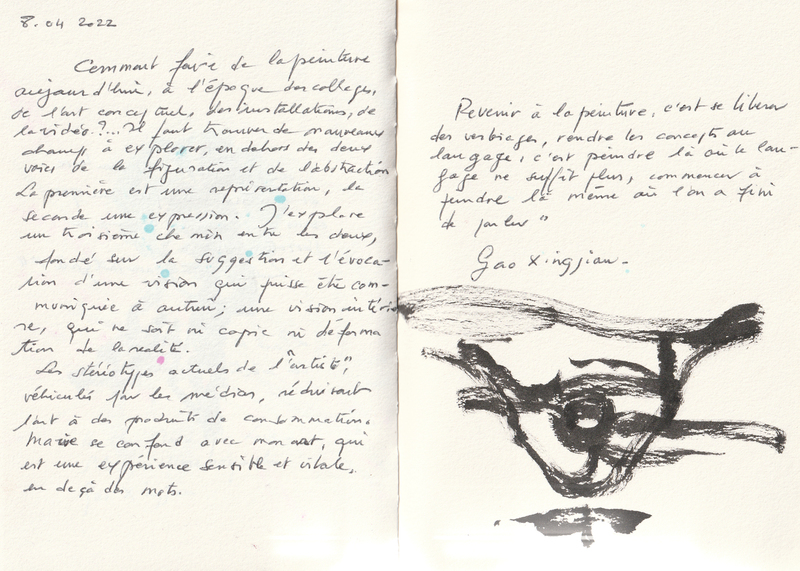 8.04 2022
Comment faire de la peinture
aujourd'hui, à l'époque des collages,
de l'art conceptuel, des installations, de
la vidéo ?... Il faut trouver de nouveaux
champs à explorer, en dehors des deux
voies de la figuration et de l'abstraction
La première est une représentation, la
seconde une expression. J'explore
un troisième chemin entre les deux,
fondé sur la suggestion et l'évoca-
tion d'une vision qui puisse être com-
muniquée à autrui ; une vision intérieu-
re, qui ne soit ni copie ni déforma
tion de la réalité.
Les stéréotypes actuels de l'"artiste",
véhiculés par les médias, réduisent
l'art à des produits de consommation.
Ma vie se confond avec mon art, qui
est une expérience sensible et vitale,
en deçà des mots.
Revenir à la peinture, c'est se libérer
des verbiages, rendre les concepts au
langage, c'est peindre là où le lan-
gage ne suffit plus, commencer à
peindre là même où l'on a fini
de parler "
Gao Xingjian -